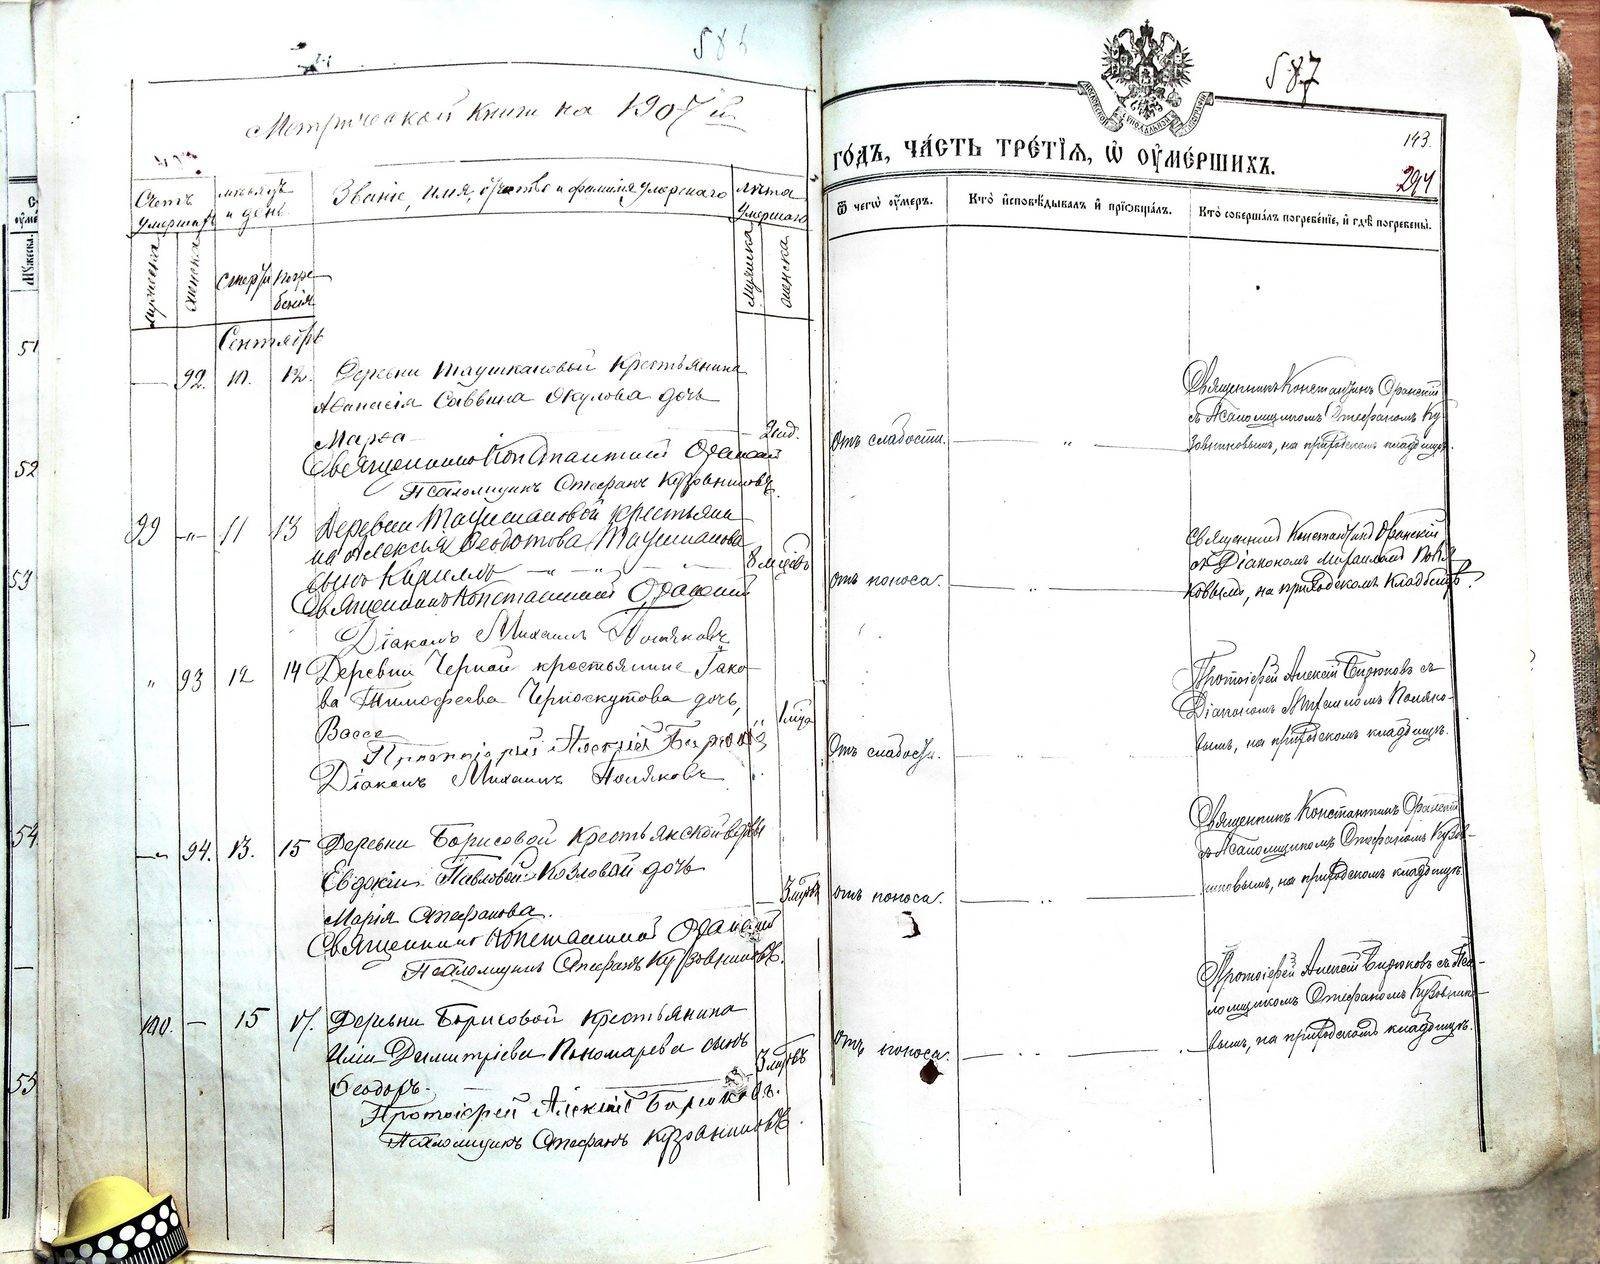 587
Метрической книги на 1907й
годъ, часть третїѧ, ѡ оумершихъ.
143.
294
Счетъ умершихъ
мѣсяцъ и день
Званіе, имя, отчество и фамилія умершаго
лѣта умершаго
Ѿ чегѡ оумеръ.
Кто исповѣдывалъ и прїобщалъ.
Кто совершалъ погребенїе, и гдѣ погребены.
мужеска
женска
смерти
погребенія
мужеска
женска
Сентябрь
92. 10. 12. Деревни Таушкановой Крестьянина
Аѳанасія Саввина Окулова дочь
Марѳа
2 год.
Отъ слабости.
Священникъ Константинъ Оранскій
съ Псаломщикомъ Стефаномъ Ку-
зовниковымъ, на приходскомъ кладбищѣ.
Священникъ Константинъ Оранскій
Псаломщикъ Стефанъ Кузовниковъ.
99 11 13 Деревни Таушкановой крестьяни-
на Алексія Ѳеодотова Таушканова
сынъ Кириллъ
8 мцевъ
отъ поноса.
Священникъ Константинъ Оранскій
съ Діакономъ Михаиломъ Поля-
ковымъ, на приходскомъ кладбищѣ.
Священникъ Константинъ Оранскій
Діаконъ Михаилъ Поляковъ
93 12 14 Деревни Черной крестьянина Іако-
ва Тимофеева Черноскутова дочь,
Васса
1 мца
Отъ слабости.
Протоіерей Алексій Бирюковъ съ
Діакономъ Михаиломъ Поляко-
вымъ, на приходскомъ кладбищѣ.
Протоіерей Алексій Бирюковъ
Діаконъ Михаилъ Поляковъ
94. 13. 15 Деревни Борисовой Крестьянской вдовы
Евдокіи Павловой Козловой дочь
Марія Стефанова.
3 мцевъ
отъ поноса.
Священникъ Константинъ Оранскій
съ Псаломщикомъ Стефаномъ Кузов-
никовымъ, на приходскомъ кладбищѣ.
Священникъ Константинъ Оранскій
Псаломщикъ Стефанъ Кузовниковъ.
100. 15 17. Деревни Борисовой крестьянина
Иліи Димитріева Пономарева сынъ
Ѳеодоръ.
3 мцевъ
отъ поноса.
Протоіерей Алексій Бирюковъ съ Пса-
ломщикомъ Стефаномъ Кузовнико-
вымъ, на приходскомъ кладбищѣ.
Протоіерей Алексій Бирюковъ.
Псаломщикъ Стефанъ Кузовниковъ.
51
52
53
54
55